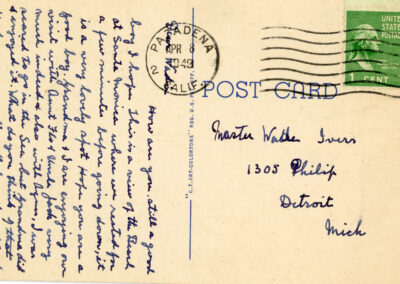 How are you, still a good
boy I hope. This is a view of the Beach
at Santa Monica where we rested for
a few minutes before going down, it
is a very lovely spot. Hope you are a
good boy. Grandma & I are enjoying our
visit with Aunt Flo & Uncle Jack very
much indeed also with Agnes, I was
scared to go in the Sea but Grandma did
enjoyed it. What do you think of that
"C.T. ART-COLORTONE" REG. U.S. PAT. OFF.
PASADENA
APR 8
1949
2
CALIF.
UNITED
STATES
POSTAGE
1 CENT
POST CARD
Master Walter Ivers
1305 Philip
Detroit
Mich